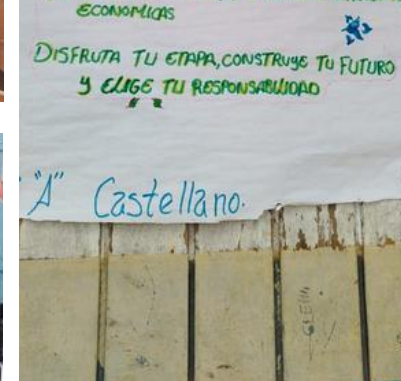 ECONOMICAS
DISFRUTA TU ETAPA, CONSTRUYE TU FUTURO
Y ELIGE TU RESPONSABILIDAD
"A" Castellano.